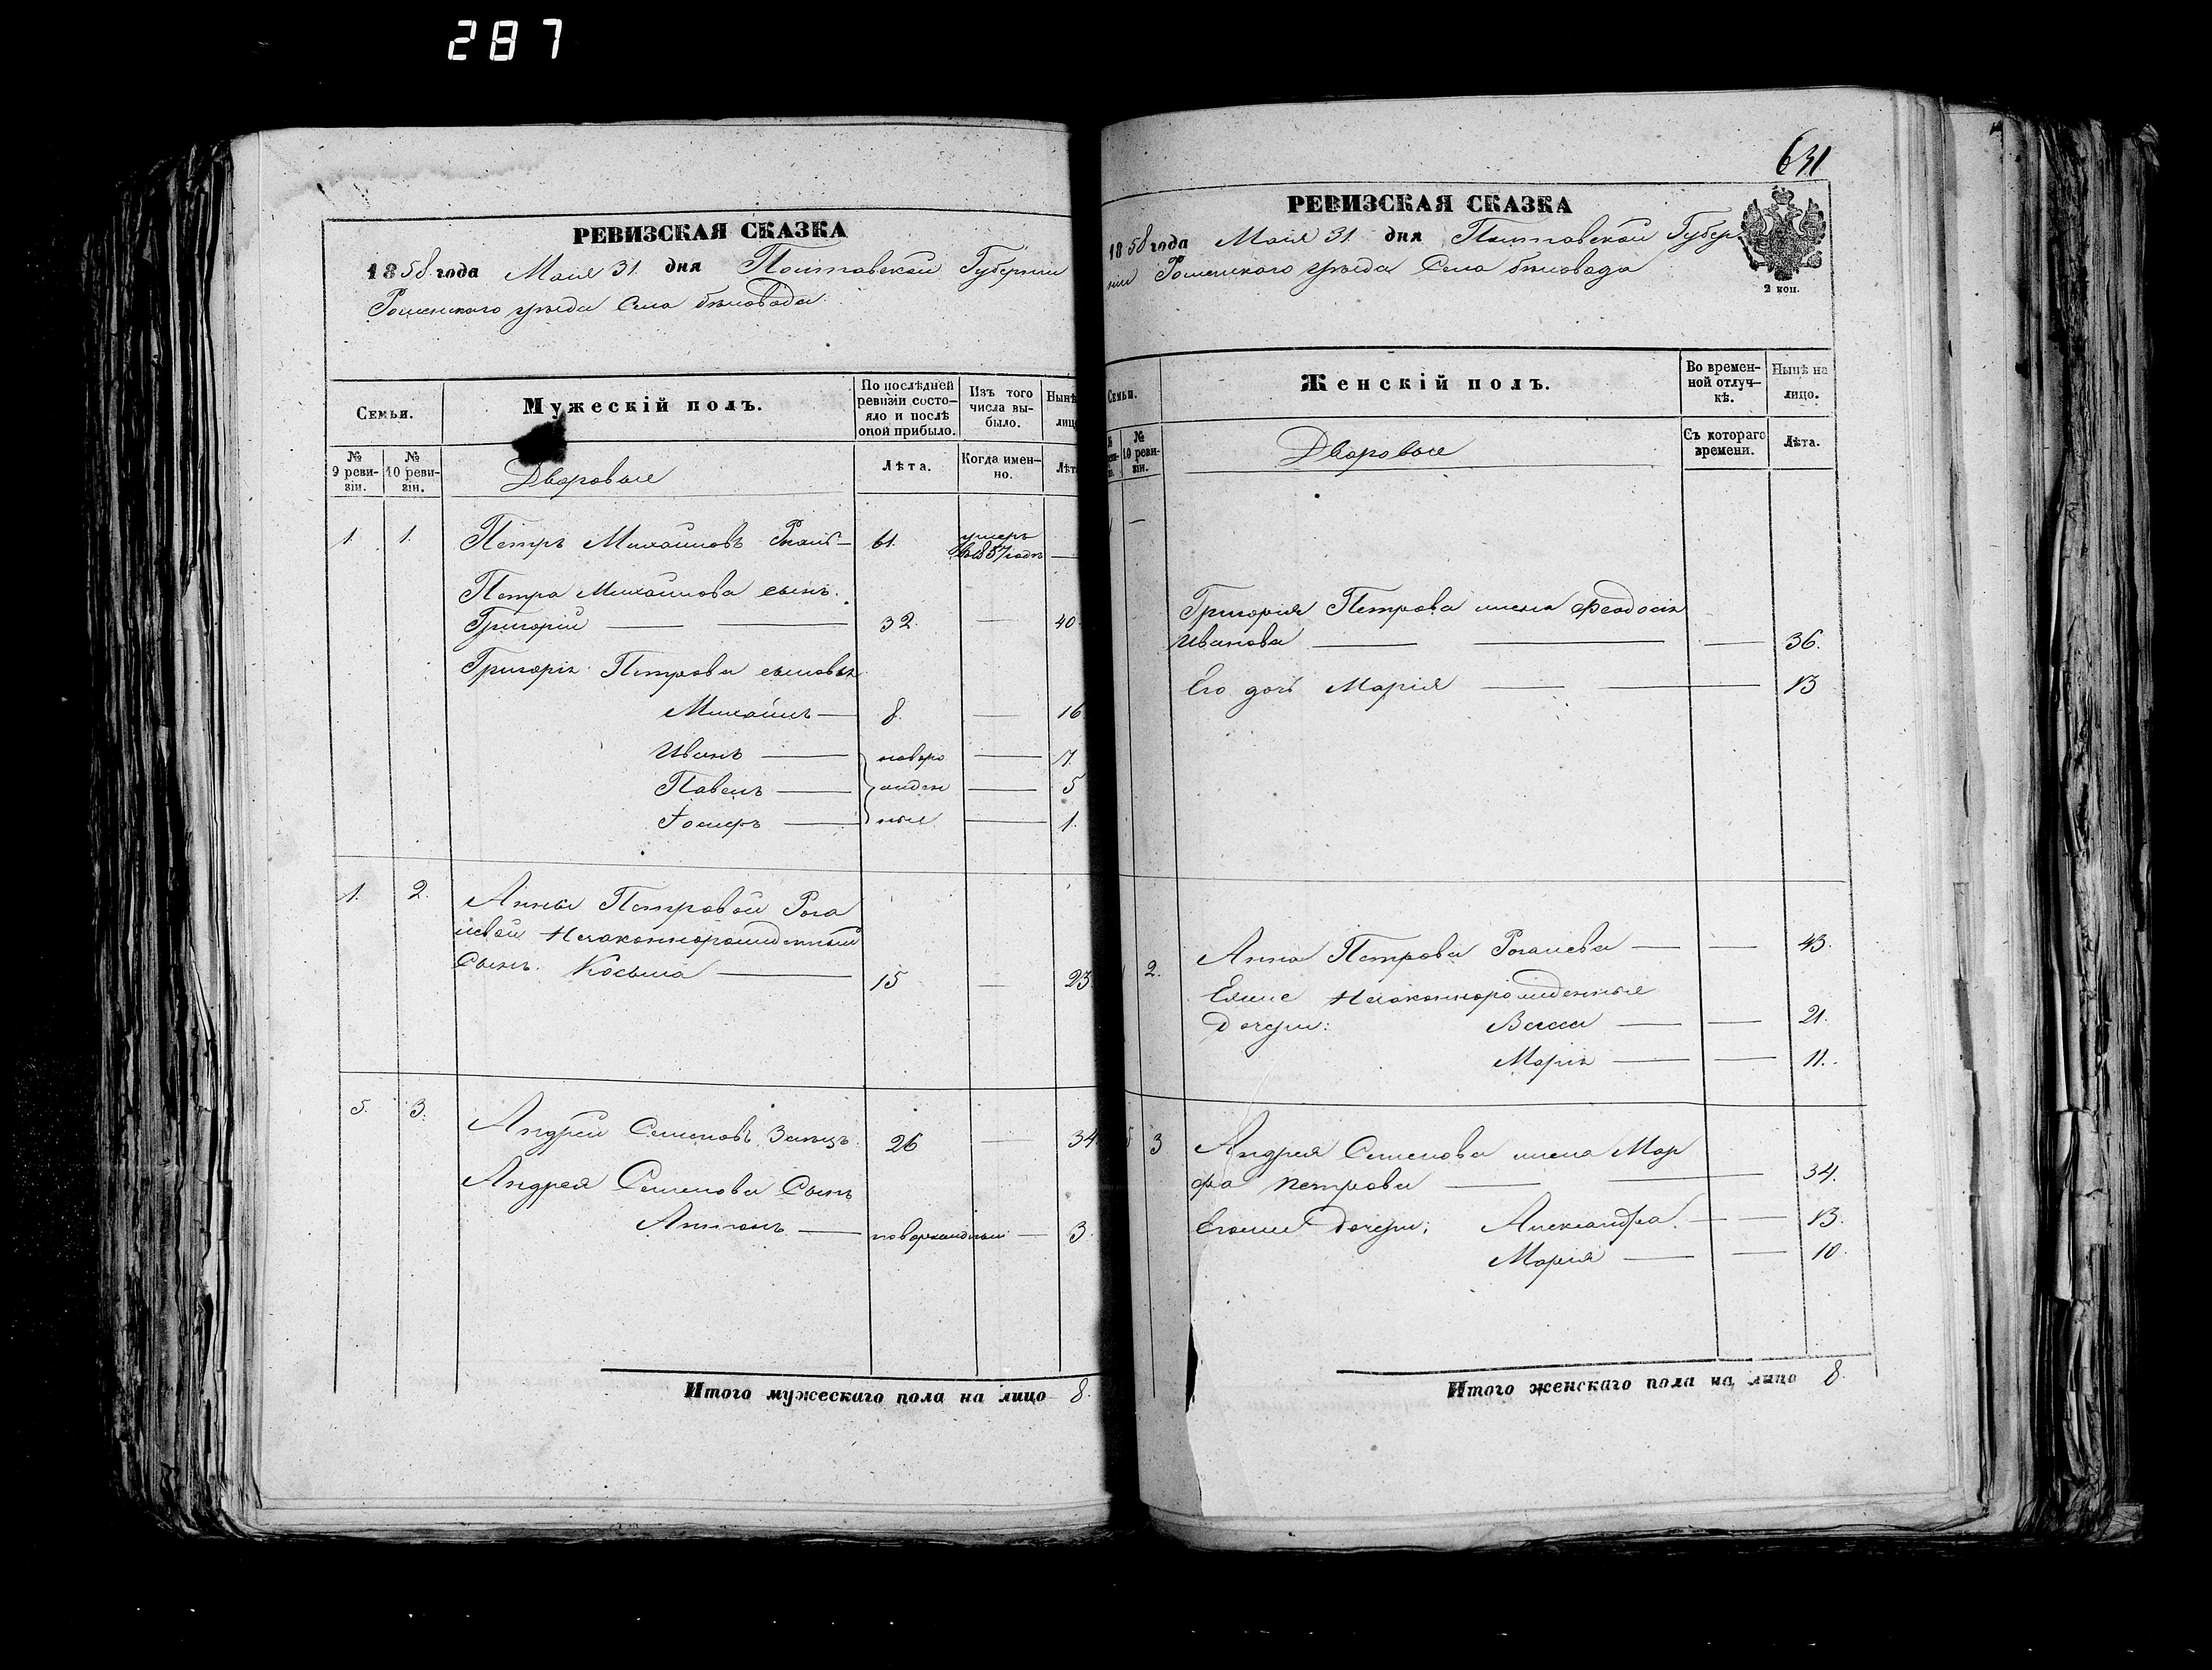 287
РЕВИЗСКАЯ СКАЗКА
1858 года Маія 31. дня Полтавской Губерніи
Роменского уѣзда Села бѣловода
Семьи.
Мужескій полъ.
По послѣдней ревизіи состо-
яло и послѣ
оной прибыло.
Изъ того
числа вы-
было.
Нынѣ
лиц
№
9 реви-
зіи.
№
10 реви-
зіи.
Дворовые
Лѣта.
Когда имен-
но.
Лѣт
1. 1. Петръ Михаиловъ — 61. умеръ
въ 1857 годѣ —
Петра Михаилова сынъ.
Григорій — — 32. — 40.
Григорія Петрова сыновья
Михаилъ — 8. — 16
Иванъ — новоро — 7.
Павелъ — жден — 5
— ные — 1.
1. 2. Анны Петровой Рога
левой Незаконнорожденный
Сынъ. Косьма — 15 — 23.
5. 3. Андрей Семеновъ Заецъ. 26 — 34.
Андрея Семенова Сынъ
Антонъ — новорожденный — 3.
Итого мужескаго пола на лицо 8.
631
РЕВИЗСКАЯ СКАЗКА
1858 года Маія 31. дня Полтавской Губер
ніи Роменского уѣзда Села бѣловода
2 коп.
Семьи.
Женскій полъ.
Во времен-
ной отлуч-
кѣ.
Нынѣ на
лицо.
№
10 реви-
зіи.
Дворовые
Съ котораго
времени.
Лѣта.
Григорія Петрова жена Феодосія
Иванова — — — 36.
Его дочь Марія — — 13
2. Анна Петрова Рогалева — — 43.
Еяже Незаконнорожденныя
Дочери: Васса — — 21.
Марія — — 11.
3 Андрея Семенова жена Мар
фа Петрова — — 34.
Егоже Дочери; Александра. — — 13.
Марія — — 10.
Итого женскаго пола на лицо 8.